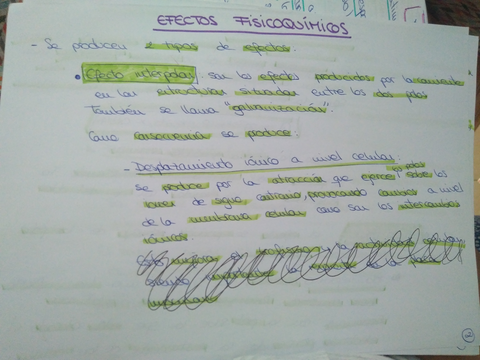 EFECTOS FISICOQUÍMICOS
- Se producen 2 tipos de efectos:
• Efecto interpolar: son los efectos producidos por la corriente
en las estructuras situadas entre los dos polos
También se llama "galvanización".
Como consecuencia se produce:
- Desplazamiento iónico a nivel celular:
los polos
se produce por la atracción que ejercen sobre los
iones de signo contrario, provocando cambios a nivel
de la membrana celular como son los intercambios
iónicos.